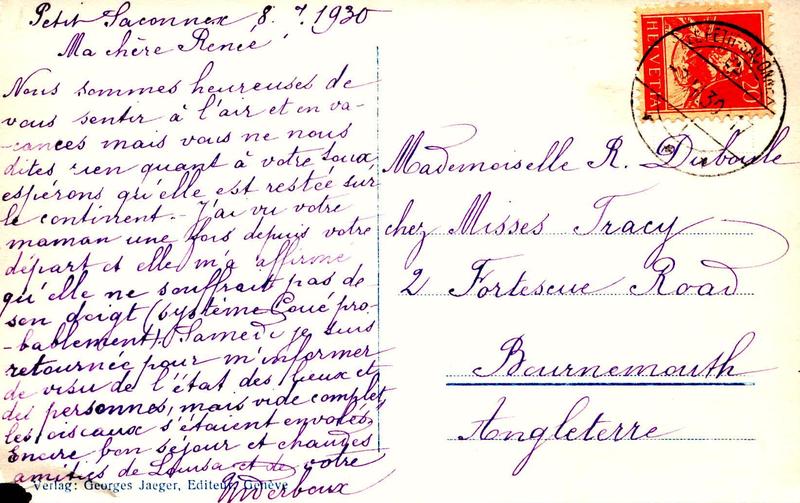 Petit Saconnex 8. 7. 1930
Ma chère Renée,
Nous sommes heureuses de
vous sentir à l'air et en va-
-cances mais vous ne nous
dites rien quant à votre toux,
espérons qu'elle est restée sur
le continent. - J'ai vu votre
maman une fois depuis votre
départ et elle m'a affirmé
qu'elle ne souffrait pas de
son doigt (système Coué pro-
-bablement). Samedi je suis
retournée pour m'informer
de visu de l'état des lieux et
des personnes, mais vide complet,
les oiseaux s'étaient envolés.
Encore bon séjour et chaudes
amitiés de et de votre
Verlag: Georges Jaeger, Editeur, Genève
Mademoiselle R. Duboule
chez Misses Tracy
2 Fortescue Road
Bournemouth
Angleterre
HELVETIA
20
PETIT-SACONNEX